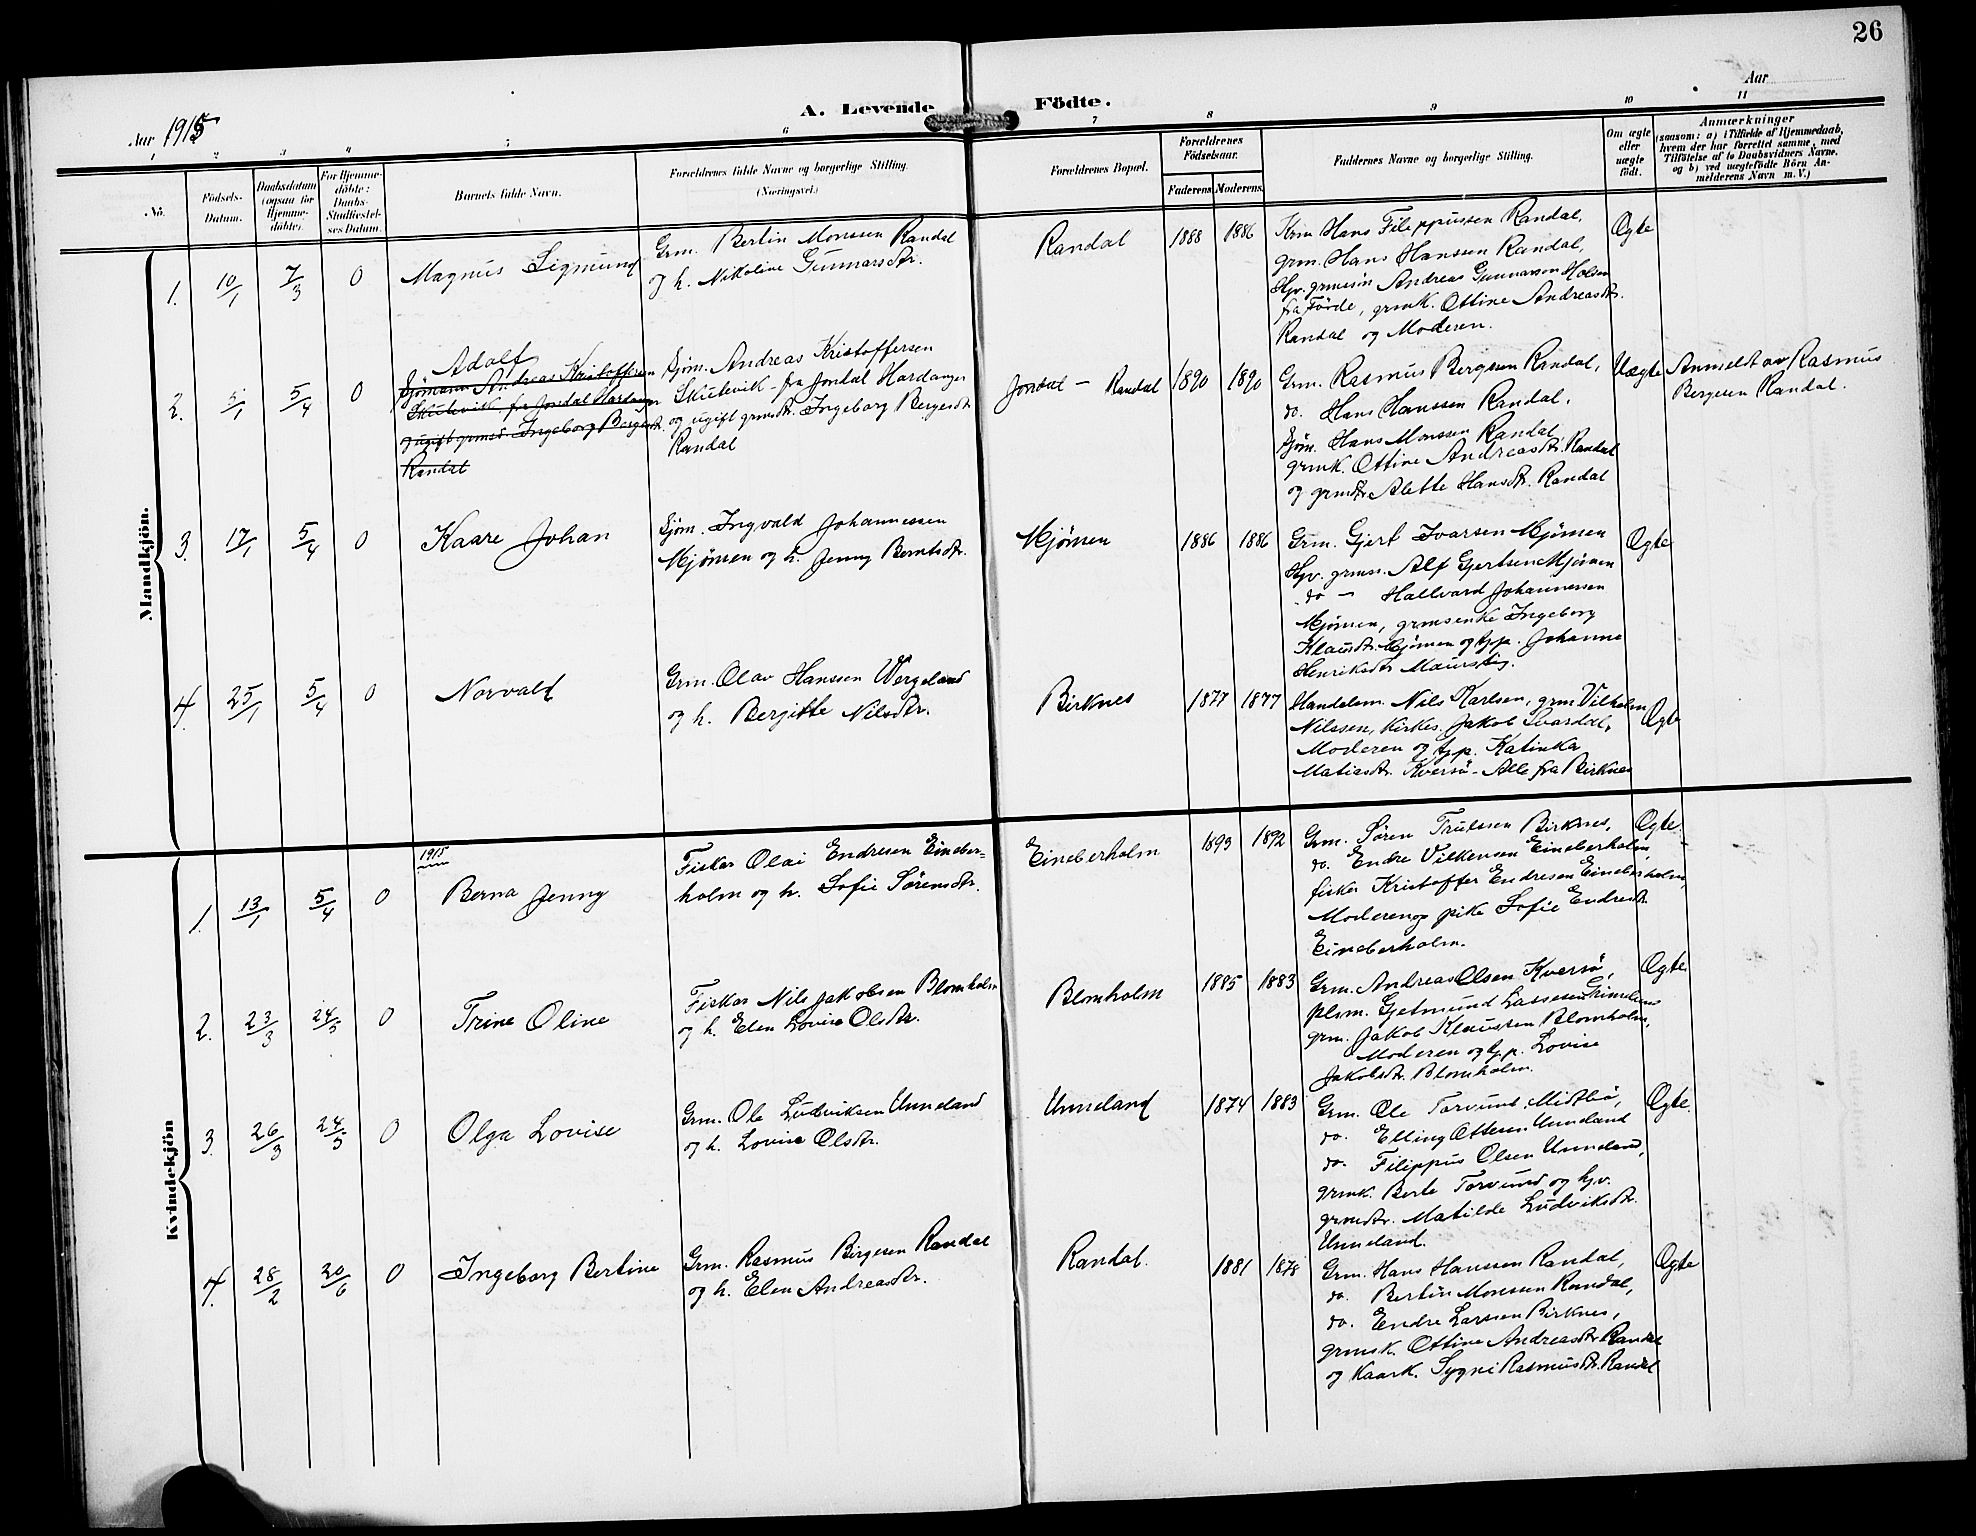 26
Aar 1915
A. Levende Födte.
Aar
1 2 3 4 5 6 7 8 9 10 11
No.
Födsels-
Datum.
Daabsdatum
(ogsaa för
Hjemme-
döbte).
For Hjemme-
döbte:
Daabs-
Stadfæstel-
ses Datum.
Barnets fulde Navn.
Forældrenes fulde Navne og borgerlige Stilling.
(Næringsvei.)
Forældrenes Bopæl.
Forældrenes
Födselsaar.
Faderens. Moderens.
Faddernes Navne og borgerlige Stilling.
Om ægte
eller
uægte
födt.
Anmærkninger
(saasom: a) i Tilfælde af Hjemmedaab,
hvem der har forrettet samme, med
Tilföielse af to Daabsvidners Navne,
og b) ved uægtefödte Börn An-
melderens Navn m. V.)
Mandkjön.
1. 10/1 7/3 0 Magnus Sigmund
Grm. Bertin Monssen Randal
og h. Nikoline Gunnarsdtr.
Randal 1888 1886
Krm Hans Filippussen Randal,
grm. Hans Hanssen Randal,
Hjv. grmsøn Andreas Gunnarson Holsen
fra Förde, grmk. Ottine Andreasdtr.
Randal og Moderen.
Ægte
2. 5/1 5/4 0 Adolf
Sjömann Andreas Kristoffersen
Skutevik fra Jondal Hardanger
og ugift grmsd Ingeborg Bergesdtr.
Randal
Sjøm. Andreas Kristoffersen
Skutevik - fra Jondal Hardanger
og ugift grmdtr. Ingeborg Bergesdtr
Randal
Jondal - Randal 1890 1890
Grm. Rasmus Bergsen Randal,
do. Hans Hanssen Randal,
Sjøm. Hans Monssen Randal,
grmk. Ottine Andreasdtr. Randal
og grmdtr Alette Hansdtr. Randal
Uægte
Anmeldt av Rasmus
Bergesen Randal.
3. 17/1 5/4 0 Kaare Johan
Sjøm. Ingvald Johannessen
Mjømen og h. Jenny Berntsdtr.
Mjømen 1886 1886
Grm. Gjert Ivarsen Mjømen
Hjv. grmsn. Alf Gjertsen Mjømen
do - Hallvard Johannessen
Mjømen, grmsenke Ingeborg
Klausdtr. Mjømen og tjp. Johanna
Henriksdtr Maurstig.
Ægte
4. 25/1 5/4 0 Norvald
Grm. Olav Hanssen Wergeland
og h. Berjitte Nilsdtr.
Birknes 1877 1877
Handelsm. Nils Karlsen, grm Vilhelm
Nilssen, Kirkes. Jakob Svardal,
Moderen og tjp. Katinka
Matiasdtr. Kversö - Alle fra Birknes
Ægte
Kvindekjön
1915
1. 13/1 5/4 0 Berna Jenny
Fisker Olai Endresen Eineber-
holm og h. Sofie Sörensdtr.
Eineberholm 1893 1892
Grm. Sören Trulssen Birknes,
do. Endre Vilkensen Eineberholm,
fisker Kristoffer Endresen Eineberholm,
Moderen og pike Sofie Endresdtr
Eineberholm.
Ægte.
2. 23/3 24/5 0 Trine Oline
Fisker Nils Jakobsen Blomholm
og h. Elen Lovise Olsdtr.
Blomholm 1885 1883
Grm. Andreas Olsen Kversö,
plsm. Gjetmund Lassesen Grimeland
grm. Jakob Klaussen Blomholm,
Moderen og tjp. Lovise
Jakobsdtr. Blomholm.
Ægte
3. 26/3 24/5 0 Olga Lovise
Grm. Ole Ludviksen Unneland
og h. Lovise Olsdtr.
Unneland 1874 1883
Grm. Ole Torvund, Midtbö,
do. Elling Ottesen Unneland
do. Filippus Olsen Unneland,
grmk. Berte Torvund og hjv.
grmdtr. Matilde Ludviksdtr.
Unneland.
Ægte.
4. 28/2 20/6 0 Ingeborg Bertine
Grm. Rasmus Birgesen Randal
og h. Elen Andreasdtr.
Randal. 1881 1878
Grm. Hans Hanssen Randal,
do. Bertin Monssen Randal,
do. Endre Larssen Birknes,
grmsk. Ottine Andreasdtr. Randal
og Kaark. Sygni Rasmusdtr. Randal
Ægte